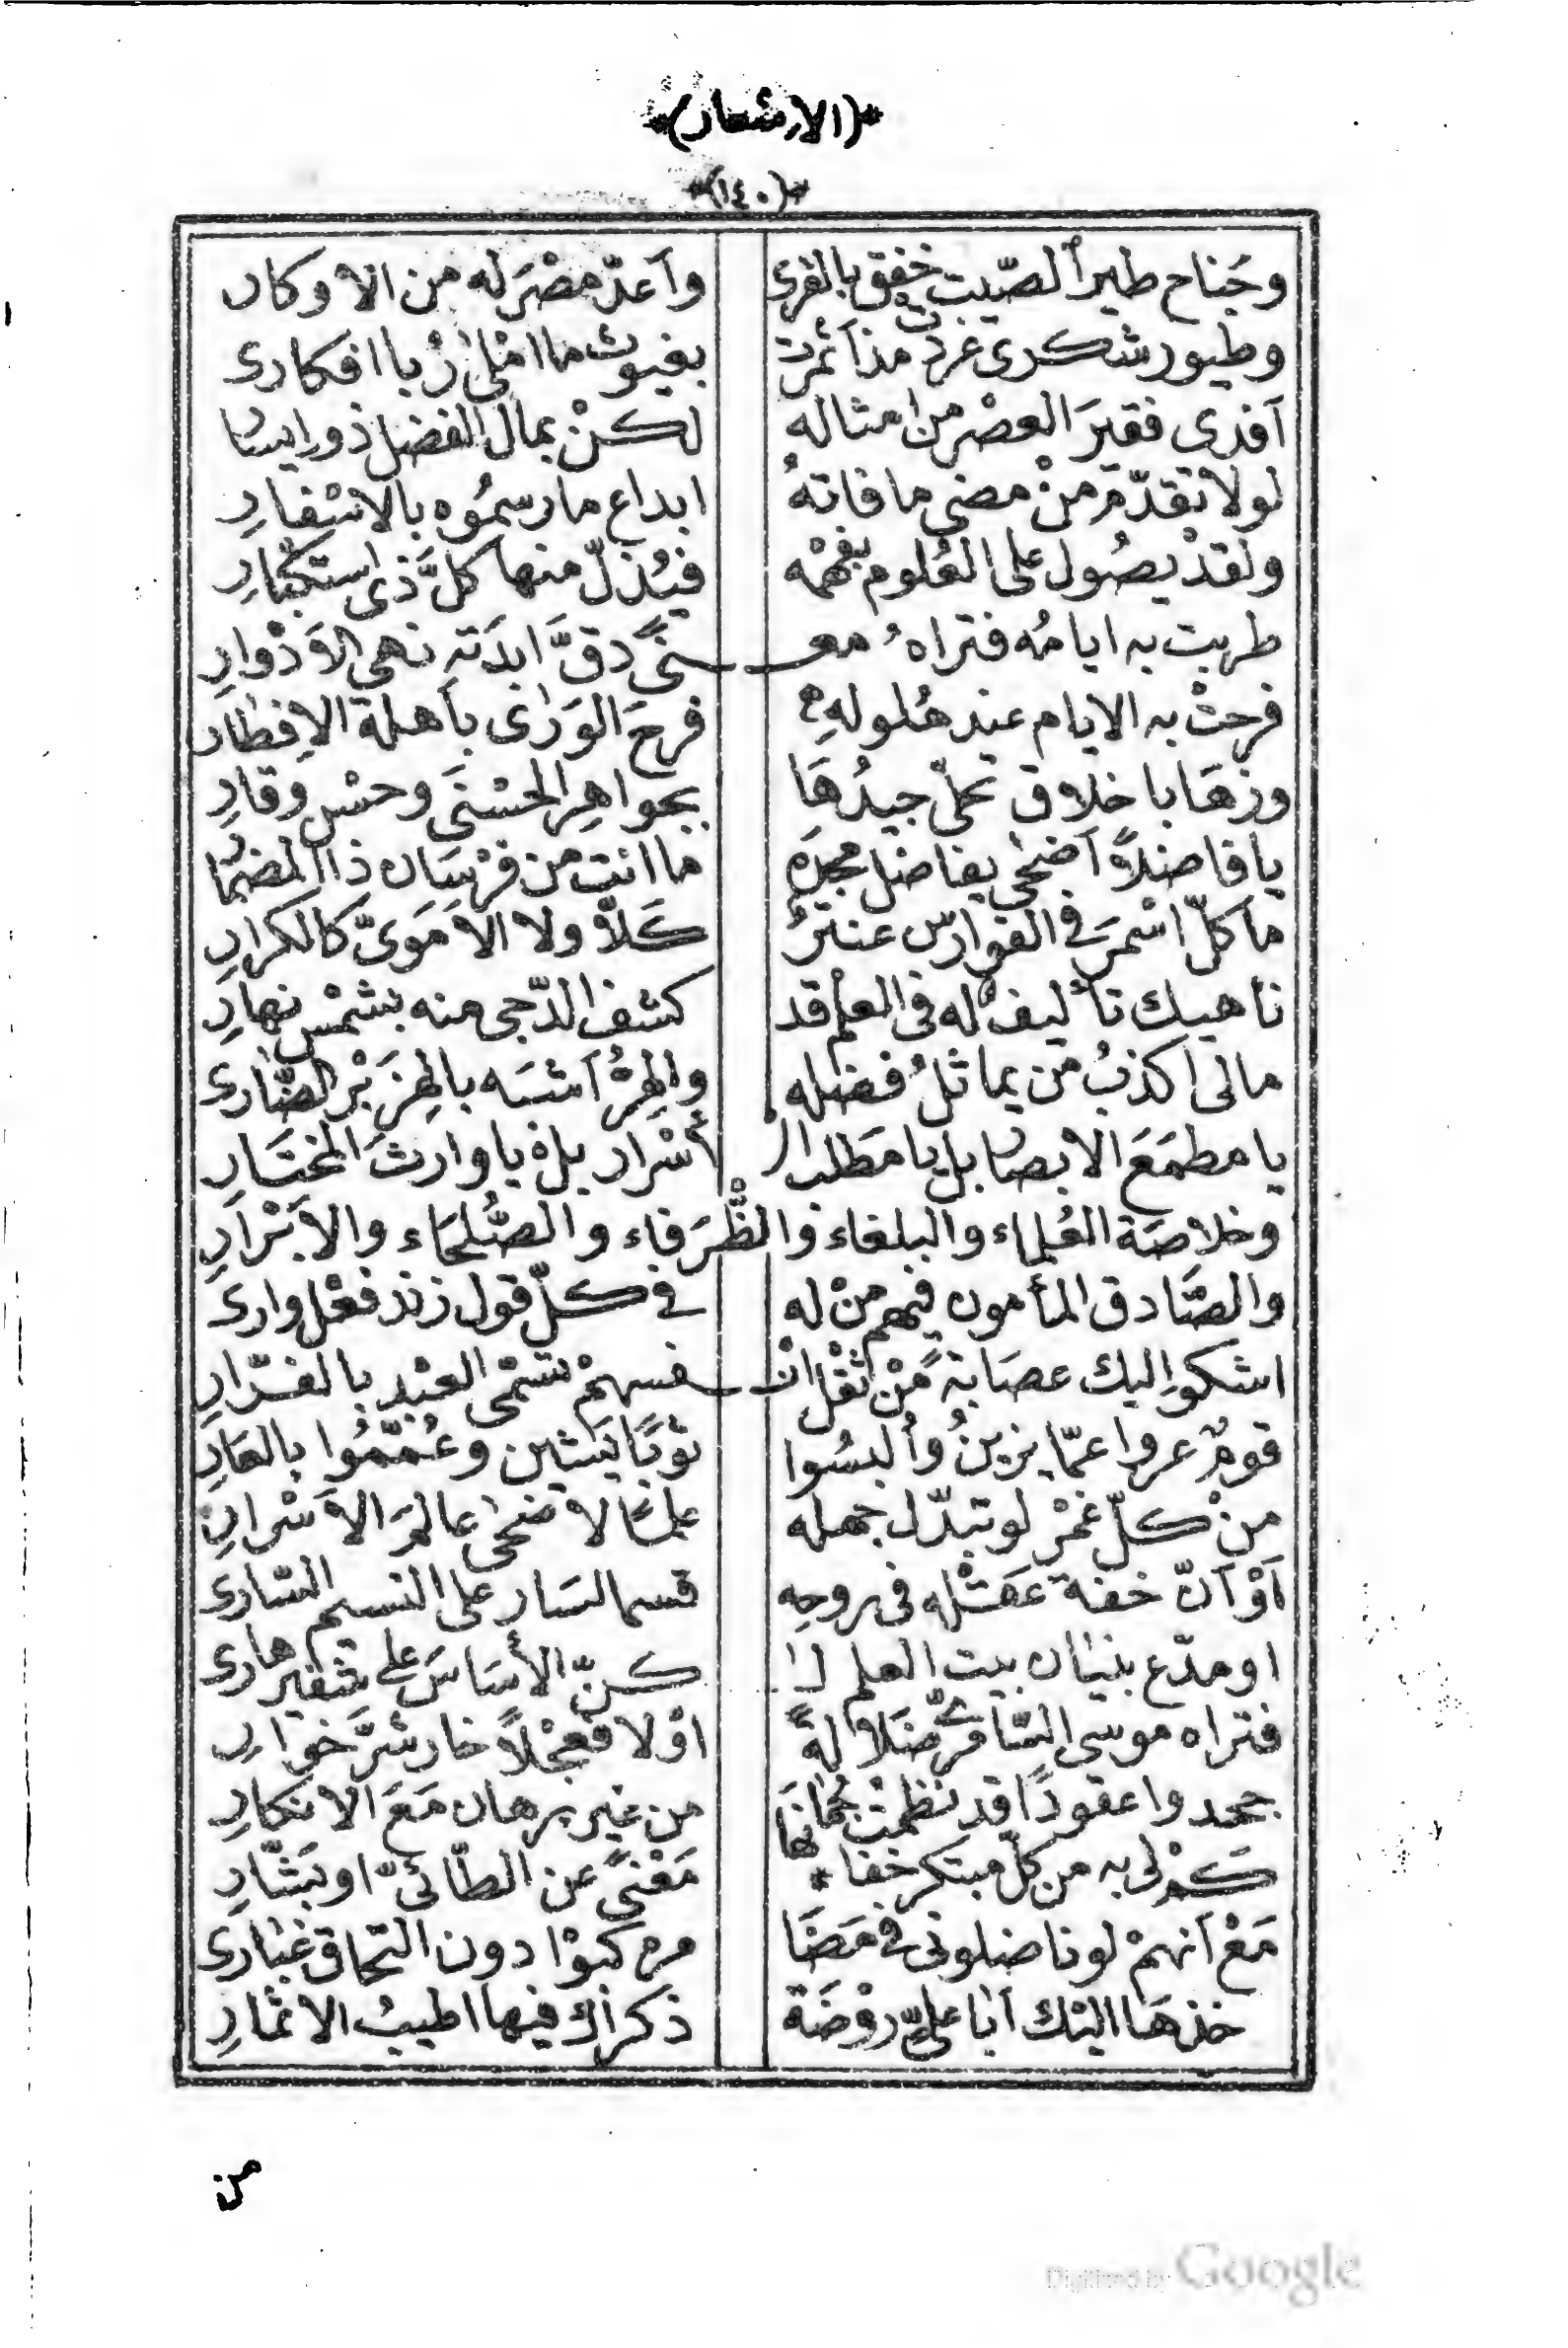 *(الأشعار)*
*(١٤٠)*
وجَناح طير الصّيت خفق بالقرى وآعدّ مصْرَ له من الاوكار
وطيور شكرى غردت مذ آثمرت بغيوث ما املى رُبا افكارى
آفدى فقيرَ العصْر من امثاله لكنْ بمال الفضل ذو ايسار
لولا تقدّم منْ مضى ما فاتهُ ابداع ما رسمُوه بالاسْفارِ
ولقدْ يصُول على العُلوم بفهْمه فيُذلّ منها كلَّ ذى استكبارِ
طربت به ايامُه فتراهُ معـ ـنىً دقَّ ابدَته نهى الآدْوارِ
فرحتْ به الايام عند هُلولهِ فرحَ الوَرَى بآهلة الاِفطار
وزهَا باخلاق تحلّى جيدُهَا بجواهِر الحسْنَى وحسْن وقارِ
يا فاضلاً آضحى يفاضل مجدَه ما انت من فرْسَان ذا المضمار
ما كلّ اسْمرَ فى الفوارس عنترٌ كَلاّ ولا الآمَوىّ كالكرارِ
ناهيك تأليف له فى العلم قد كشف الدّجى منه بشمْس نهارِ
مالى اكذبُ من يماثلُ فضله والهِرُّ آشبَه بالهِزَبْر الضّارى
يا مطمَعَ الابصار بل يا مَطلب الـ أسْرار بلْ يا وارثَ المختَارِ
وخلاصَة العُلماء والبلغاء والظُّرَفاء والصُّلحَاء والآبْرَارِ
والصَّادق المأمون فيهم منْ له فى كلّ قول زند فعْل وارى
اشكو اليك عصَابةً مّنْ ثقْل انـ ـفسهمْ تسَمّى العبْد بالفرّارِ
قومٌ عروا عمّا يزينُ وأُلبسُوا ثوْبًا يَشين وعُمّمُوا بالعَارِ
منْ كلّ غمْر لو تبدّل جهله علمًا لاضحى عالمَ الآسْرارِ
آوْ آنّ خفة عقْله فى روحِه قسما لسَار على النسيم السّارى
او مدّع بنيان بيت العلم لـ ـكنّ الأسَاسَ على شفير هارى
فتراه موسى السّامرىّ ضَلالةً اوْلا فعجْلاً خار شرَّ خوارِ
جحدوا عقودًا قد نظمْت جُمانَها من غير برهان مَعَ الانكارِ
كمْ لى به من كلّ مبتكر خفا* مَغْنىً عن الطّائىّ او بَشّارِ
مَعْ آنهمْ لو ناضلونى فى مَضَا مرهم كبوْا دون التحاق غبارى
خذهَا اليْك آبا علىّ روْضَة ذكراك فيها اطيبُ الاثمارِ
من
Digitized by Google